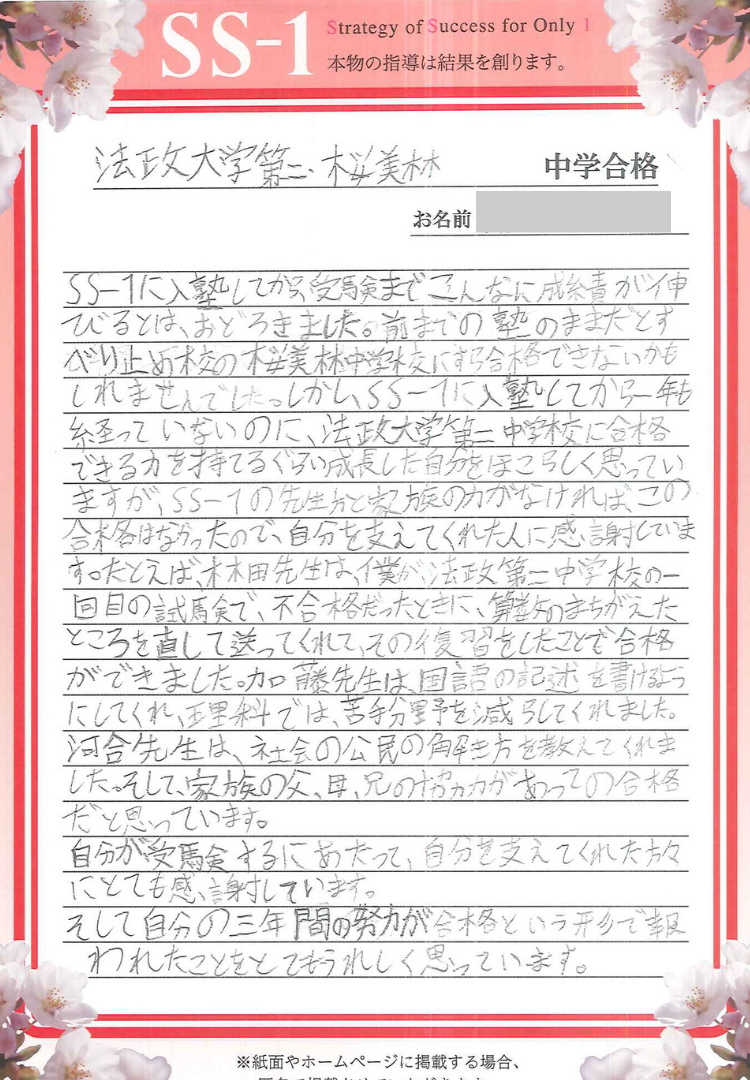 SS-1
Strategy of Success for Only 1
本物の指導は結果を創ります。
法政大学第二・桜美林 中学合格
お名前
SS-1に入塾してから、受験までこんなに成績が伸
びるとは、おどろきました。前までの塾のままだとす
べり止め校の桜美林中学校にすら合格できないかも
しれませんでした。しかし、SS-1に入塾してから一年も
経っていないのに、法政大学第二中学校に合格
できる力を持てるぐらい成長した自分をほこらしく思ってい
ますが、SS-1の先生方と家族の力がなければ、この
合格はなかったので、自分を支えてくれた人に感謝していま
す。たとえば、林田先生は、僕が、法政第二中学校の一
回目の試験で、不合格だったときに、算数のまちがえた
ところを直して送ってくれて、その復習をしたことで合格
ができました。加藤先生は、国語の記述を書けるよう
にしてくれ、理科では、苦手分野を減らしてくれました。
河合先生は、社会の公民の解き方を教えてくれま
した。そして、家族の父、母、兄の協力があっての合格
だと思っています。
自分が受験するにあたって、自分を支えてくれた方々
にとても感謝しています。
そして自分の三年間の努力が合格という形で報
われたことをとてもうれしく思っています。
※紙面やホームページに掲載する場合、